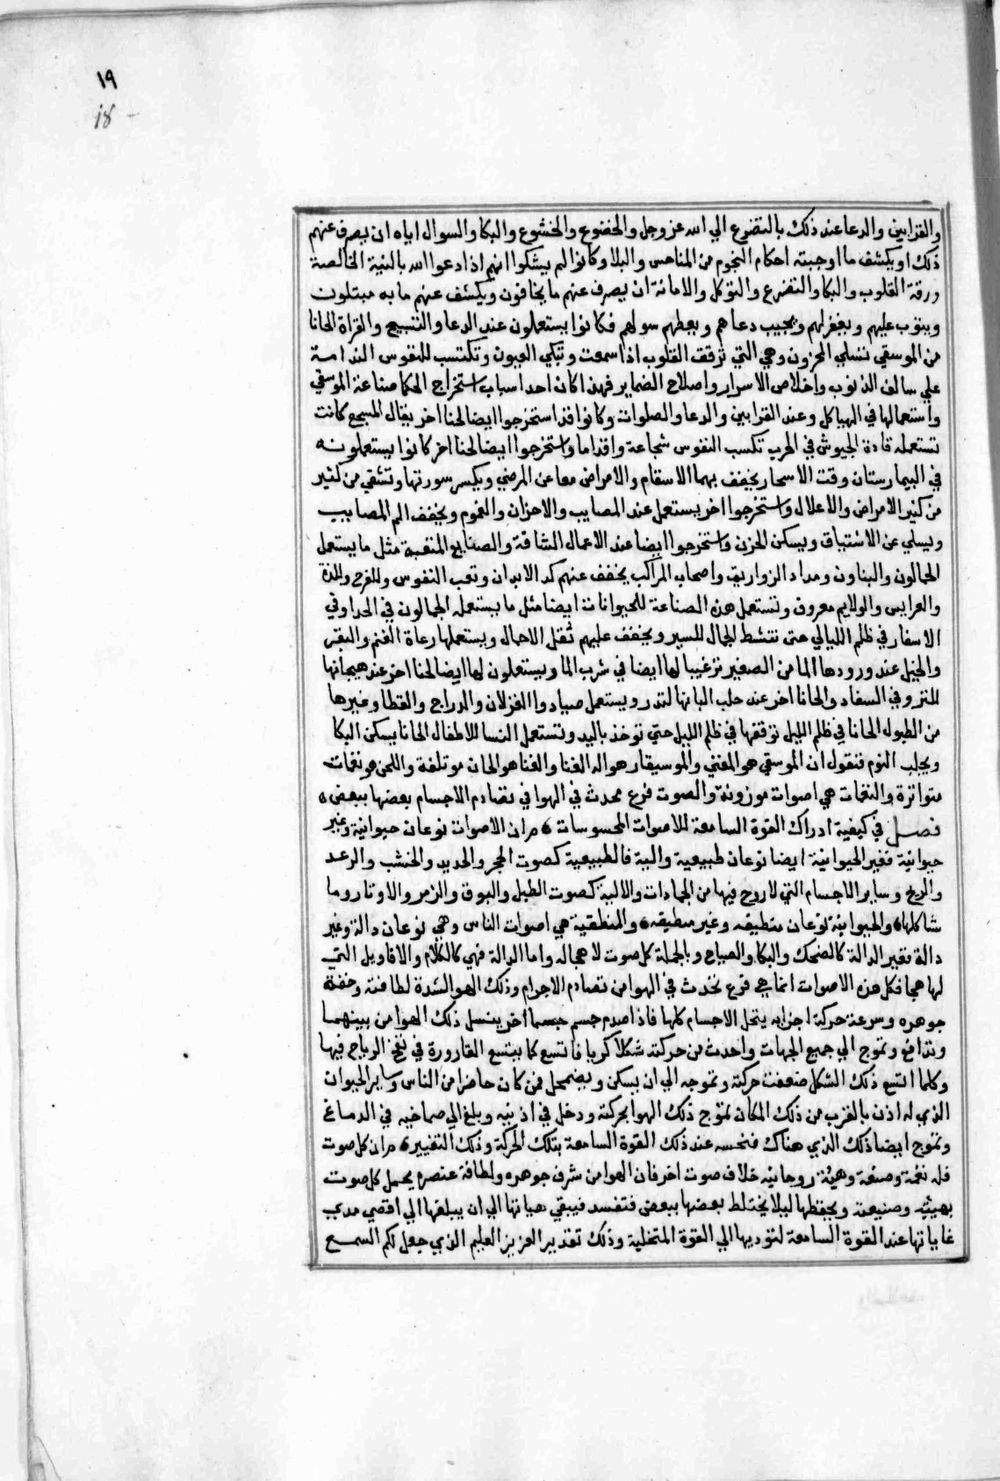 ١٩
18
والقرابين والدعا عند ذلك بالتضرع الي الله عز وجل والخضوع والخشوع والبكا والسوال اياه ان يصرف عنهم
ذلك او يكشف ما اوجبته احكام النجوم من المناحس والبلا وكانوا لم يشكوا انهم اذا دعوا الله بالنية الخالصة
ورقة القلوب والبكا والتضرع والتوكل والامانة ان يصرف عنهم ما يخافون ويكشف عنهم ما به مبتلون
ويتوب عليهم ويغفر لهم ويجيب دعاهم ويعطهم سولهم فكانوا يستعملون عند الدعا والتسبيح والقراة الحانا
من الموسيقي تسلي المحزون وهي التي ترقف القلوب اذا سمعت وتبكي العيون وتكتسب للنفوس الندامة
علي سالف الذنوب واخلاص الاسرار واصلاح الضماير فهذا كان احد اسباب استخراج الحكما صناعة الموسيقي
واستعمالها في الهياكل وعند القرابين والدعا والصلوات وكانوا قد استخرجوا ايضا لحنا اخر يقال المسجع كانت
تستعمله قادة الجيوش في الحرب تكسب النفوس شجاعة واقداما واستخرجوا ايضا لحنا اخر كانوا يستعملونه
في البيمارستان وقت الاسحار يخفف بهما الاسقام والامراض معا عن المرضي ويكسر سورتها وتشفي من كثير
من كثير الامراض والاعلال واستخرجوا اخر يستعمل عند المصايب والاحزان والغموم ويخفف الم المصايب
ويسلي عن الاشتياق ويسكن الحزن واستخرجوا ايضا عند الاعمال الشاقة والصنايع المتعبة مثل ما يستعمل
الحمالون والبناون ومداد الزواريق واصحاب المراكب يخفف عنهم كد الابدان وتعب النفوس وللفرح واللذة
والعرايس والولايم معروف وتستعمل هذه الصناعة للحيوانات ايضا مثل ما يستعمله الجمالون في الحدا وفي
الاسفار في ظلم الليالي حتي تنشط الجمال للسير ويخفف عليهم ثقل الاحمال ويستعملها رعاة الغنم والبقر
والخيل عند ورودها الما من الصفير ترغيبا لها ايضا في شرب الما ويستعملون لها ايضا لحنا اخر عند هيجانها
للنزو في السفاد والحانا اخر عند حلب البانها لتدر ويستعمل صيادوا الغزلان والدراج والقطا وغيرها
من الطيول الحانا في ظلم الليل توقفها في ظلم الليل حتي توخذ باليد وتستعمل النسا للاطفال الحانا يسكن البكا
ويجلب النوم فنقول ان الموسيقي هو المغني والموسيقار هو اله الغنا والغنا هو الحان موتلفة واللحن هو نغمات
متواترة والنغمات هي اصوات موزونة والصوت قرع محدث في الهوا في تصادم الاجسام بعضها ببعض ٥
فصل في كيفية ادراك القوة السامعة للاصوات المحسوسات ٥ من ان الاصوات نوعان حيوانية وغير
حيوانية فغير الحيوانية ايضا نوعان طبيعية والية فالطبيعية كصوت الحجر والحديد والخشب والرعد
والريح وساير الاجسام التي لا روح فيها من الجمادات والالية كصوت الطبل والبوق والزمر والاوتار وما
شاكلها ٥ والحيوانية نوعان منطيقه وغير منطيقه ٥ والمنطقية هي اصوات الناس وهي نوعان دالة وغير
دالة فغير الدالة كالضحك والبكا والصياح وبالجملة كل صوت لا هجا له واما الدالة فهي كالكلام والاقاويل التي
لها هجا فكل هذه الاصوات انما هي قرع يحدث في الهوا من تصادم الاجرام وذلك الهوا لشدة لطافته وخفة
جوهره وسرعة حركة اجزايه يتخلل الاجسام كلها فاذا صدم جسم جسما اخر ينسل ذلك الهوا من بينهما
وتدافع وتموج الي جميع الجهات واحدث من حركته شكلا كريا فاتسع كما يتسع القارورة في نفخ الزجاج فيها
وكلما اتسع ذلك الشكل ضعفت حركته وتموجه الي ان يسكن ويضمحل فمن كان حاضرا من الناس وساير الحيوان
الذي له اذن بالقرب من ذلك المكان تموج ذلك الهوا بحركته ودخل في اذنيه وبلغ الي صماخيه في الدماغ
وتموج ايضا ذلك الذي هناك فتحسه عند ذلك القوة السامعة بتلك الحركة وذلك التغيير ٥ من ان كل صوت
فله نغمة وصنعة وهيئة روحانيه خلاف صوت اخر فان الهوا من شرف جوهره ولطافة عنصره يحمل كل صوت
بهيئته وصنيعته ويحفظها ليلا يختلط بعضها ببعض فتفسد فيبقي هياتها الي ان يبلغها الي اقصي مدي
غاياتها عند القوة السامعة لتوديها الي القوة المتخلية وذلك تقدير العزيز العليم الذي جعل لكم السمع